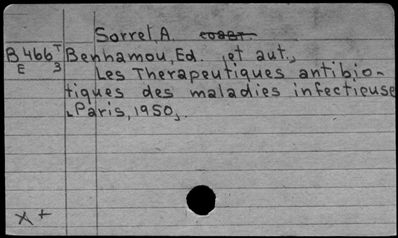 Sorrel, A.
B 466 T Benhamou, Ed. et aut.,
E 3
Les Therapeutiques antibio-
tiques des maladies infectieuse
Paris, 1950,.
X +